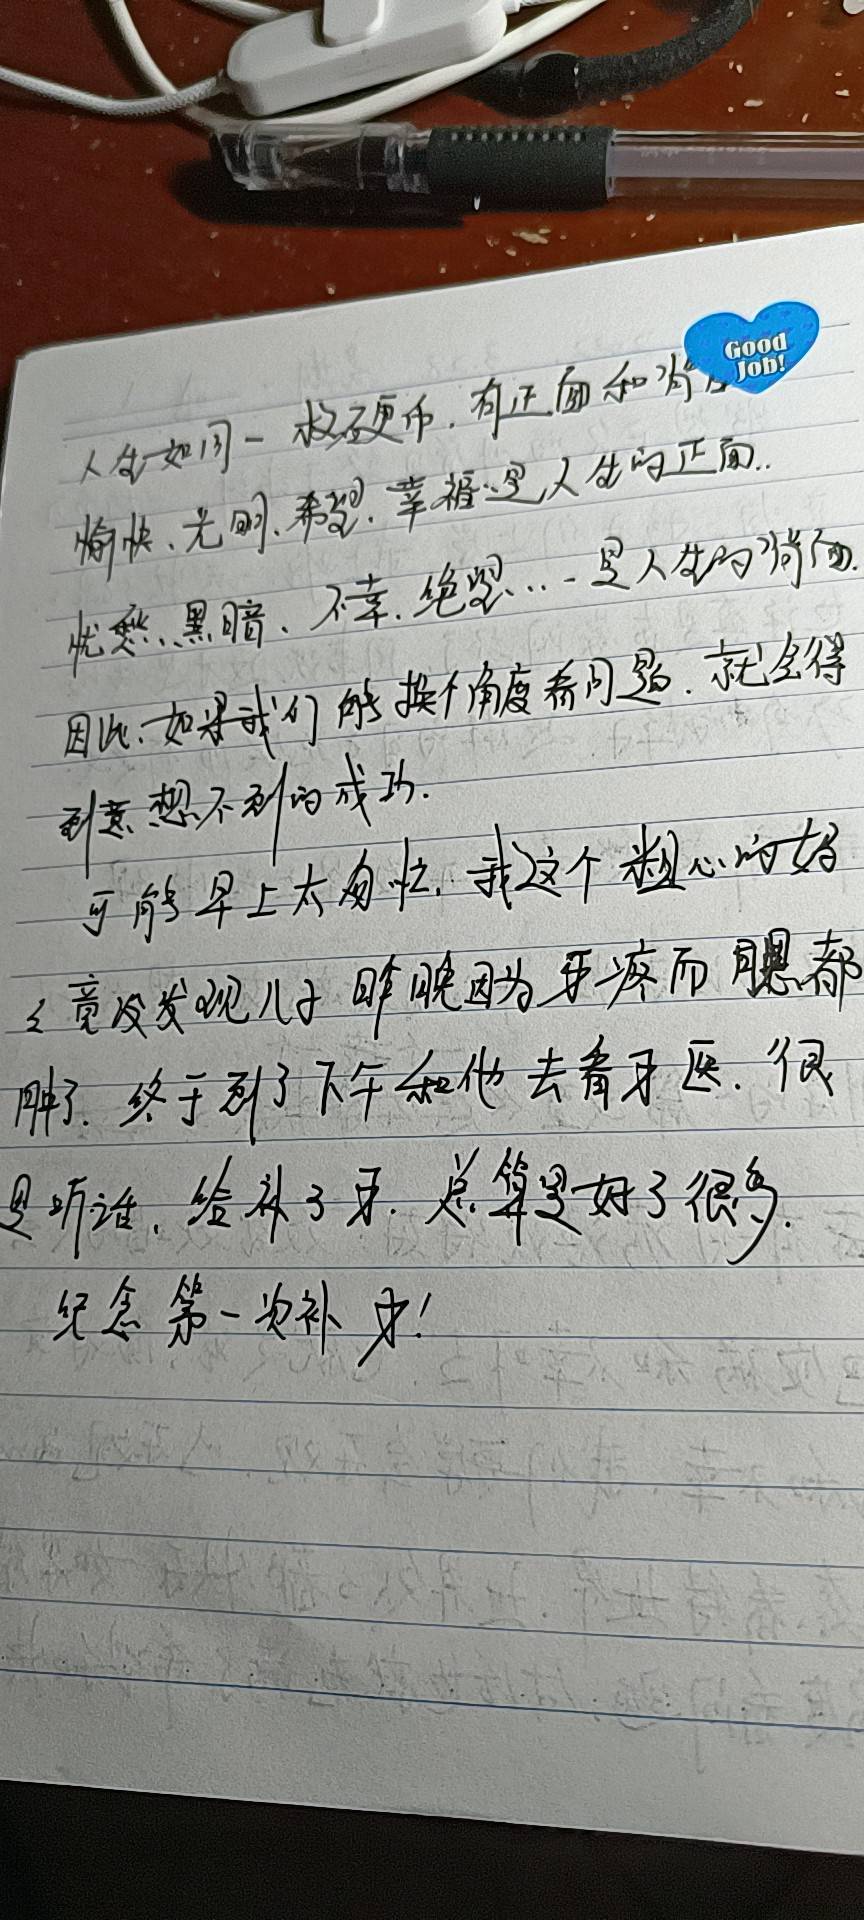 Good
Job!
人生如同一枚硬币.有正面和背
愉快、光明、希望、幸福…是人生的正面..
忧愁、黑暗、不幸、绝望…·是人生的背面.
因此.如果我们能换个角度看问题.就会得
到意想不到的成功.
可能早上太匆忙.我这个粗心的妈
竟没发现儿子昨晚因为牙疼而腮都
肿了.终于到了下午和他去看牙医.很
是听话.给补了牙.总算是好了很多.
纪念第一次补牙!